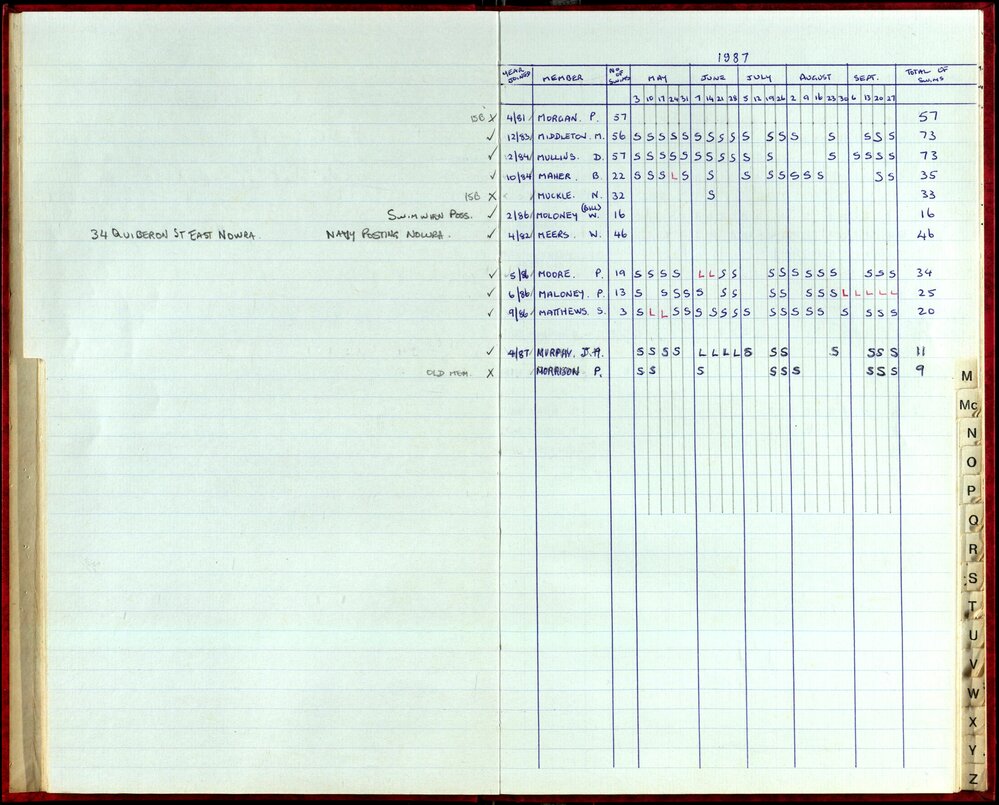 1987
YEAR JOINED MEMBER NO OF SWIMS MAY JUNE JULY AUGUST SEPT. TOTAL OF SWIMS
3 10 17 24 31 7 14 21 28 5 12 19 26 2 9 16 23 30 6 13 20 27
ISB X 4/81 MORGAN. P. 57 57
✓ 12/83 MIDDLETON. M. 56 S S S S S S S S S S S S S S S S S 73
✓ 2/84 MULLINS. D. 57 S S S S S S S S S S S S S S S S 73
✓ 10/84 MAHER. B. 22 S S S L S S S S S S S S S S 35
ISB X MUCKLE. N. 32 S 33
SWIM WHEN POSS. ✓ 2/86 MOLONEY (BILL) W. 16 16
34 QUIBERON ST EAST NOWRA. NAVY POSTING NOWRA. ✓ 4/82 MEERS. W. 46 46
✓ 5/86 MOORE. P. 19 S S S S L L S S S S S S S S S S S 34
✓ 6/86 MALONEY. P. 13 S S S S S S S S S S S S L L L L L 25
✓ 9/86 MATTHEWS. S. 3 S L L S S S S S S S S S S S S S S S S 20
✓ 4/87 MURPHY. J.A. S S S S L L L L S S S S S S S 11
OLD MEM. X MORRISON P. S S S S S S S S S 9
M
Mc
N
O
P
Q
R
S
T
U
V
W
X
Y
Z